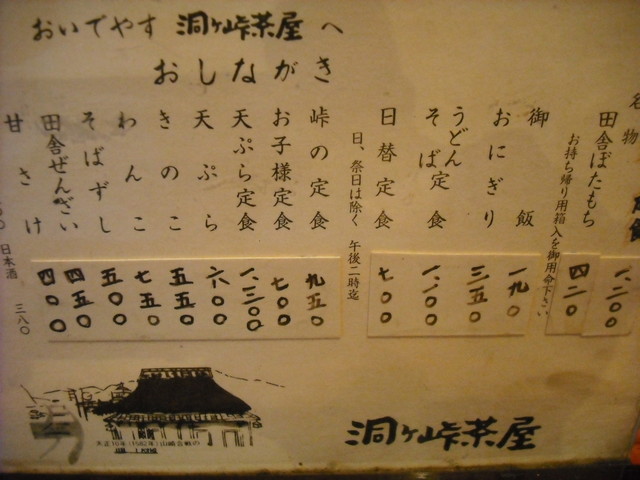 おいでやす 洞ヶ峠茶屋 へ
おしながき
名物
一、二〇〇
田舎ぼたもち 四二〇
お持ち帰り用箱入を御用命下さい
御飯 一九〇
おにぎり 三五〇
うどん
そば定食 一、〇〇〇
日替定食 七〇〇
日、祭日は除く 午後二時迄
峠の定食 九五〇
お子様定食 七〇〇
天ぷら定食 一、三〇〇
天ぷら 六〇〇
きのこ 五五〇
わんこ 七五〇
そばずし 五〇〇
田舎ぜんざい 四五〇
甘さけ 四〇〇
日本酒 三八〇
洞ヶ峠茶屋